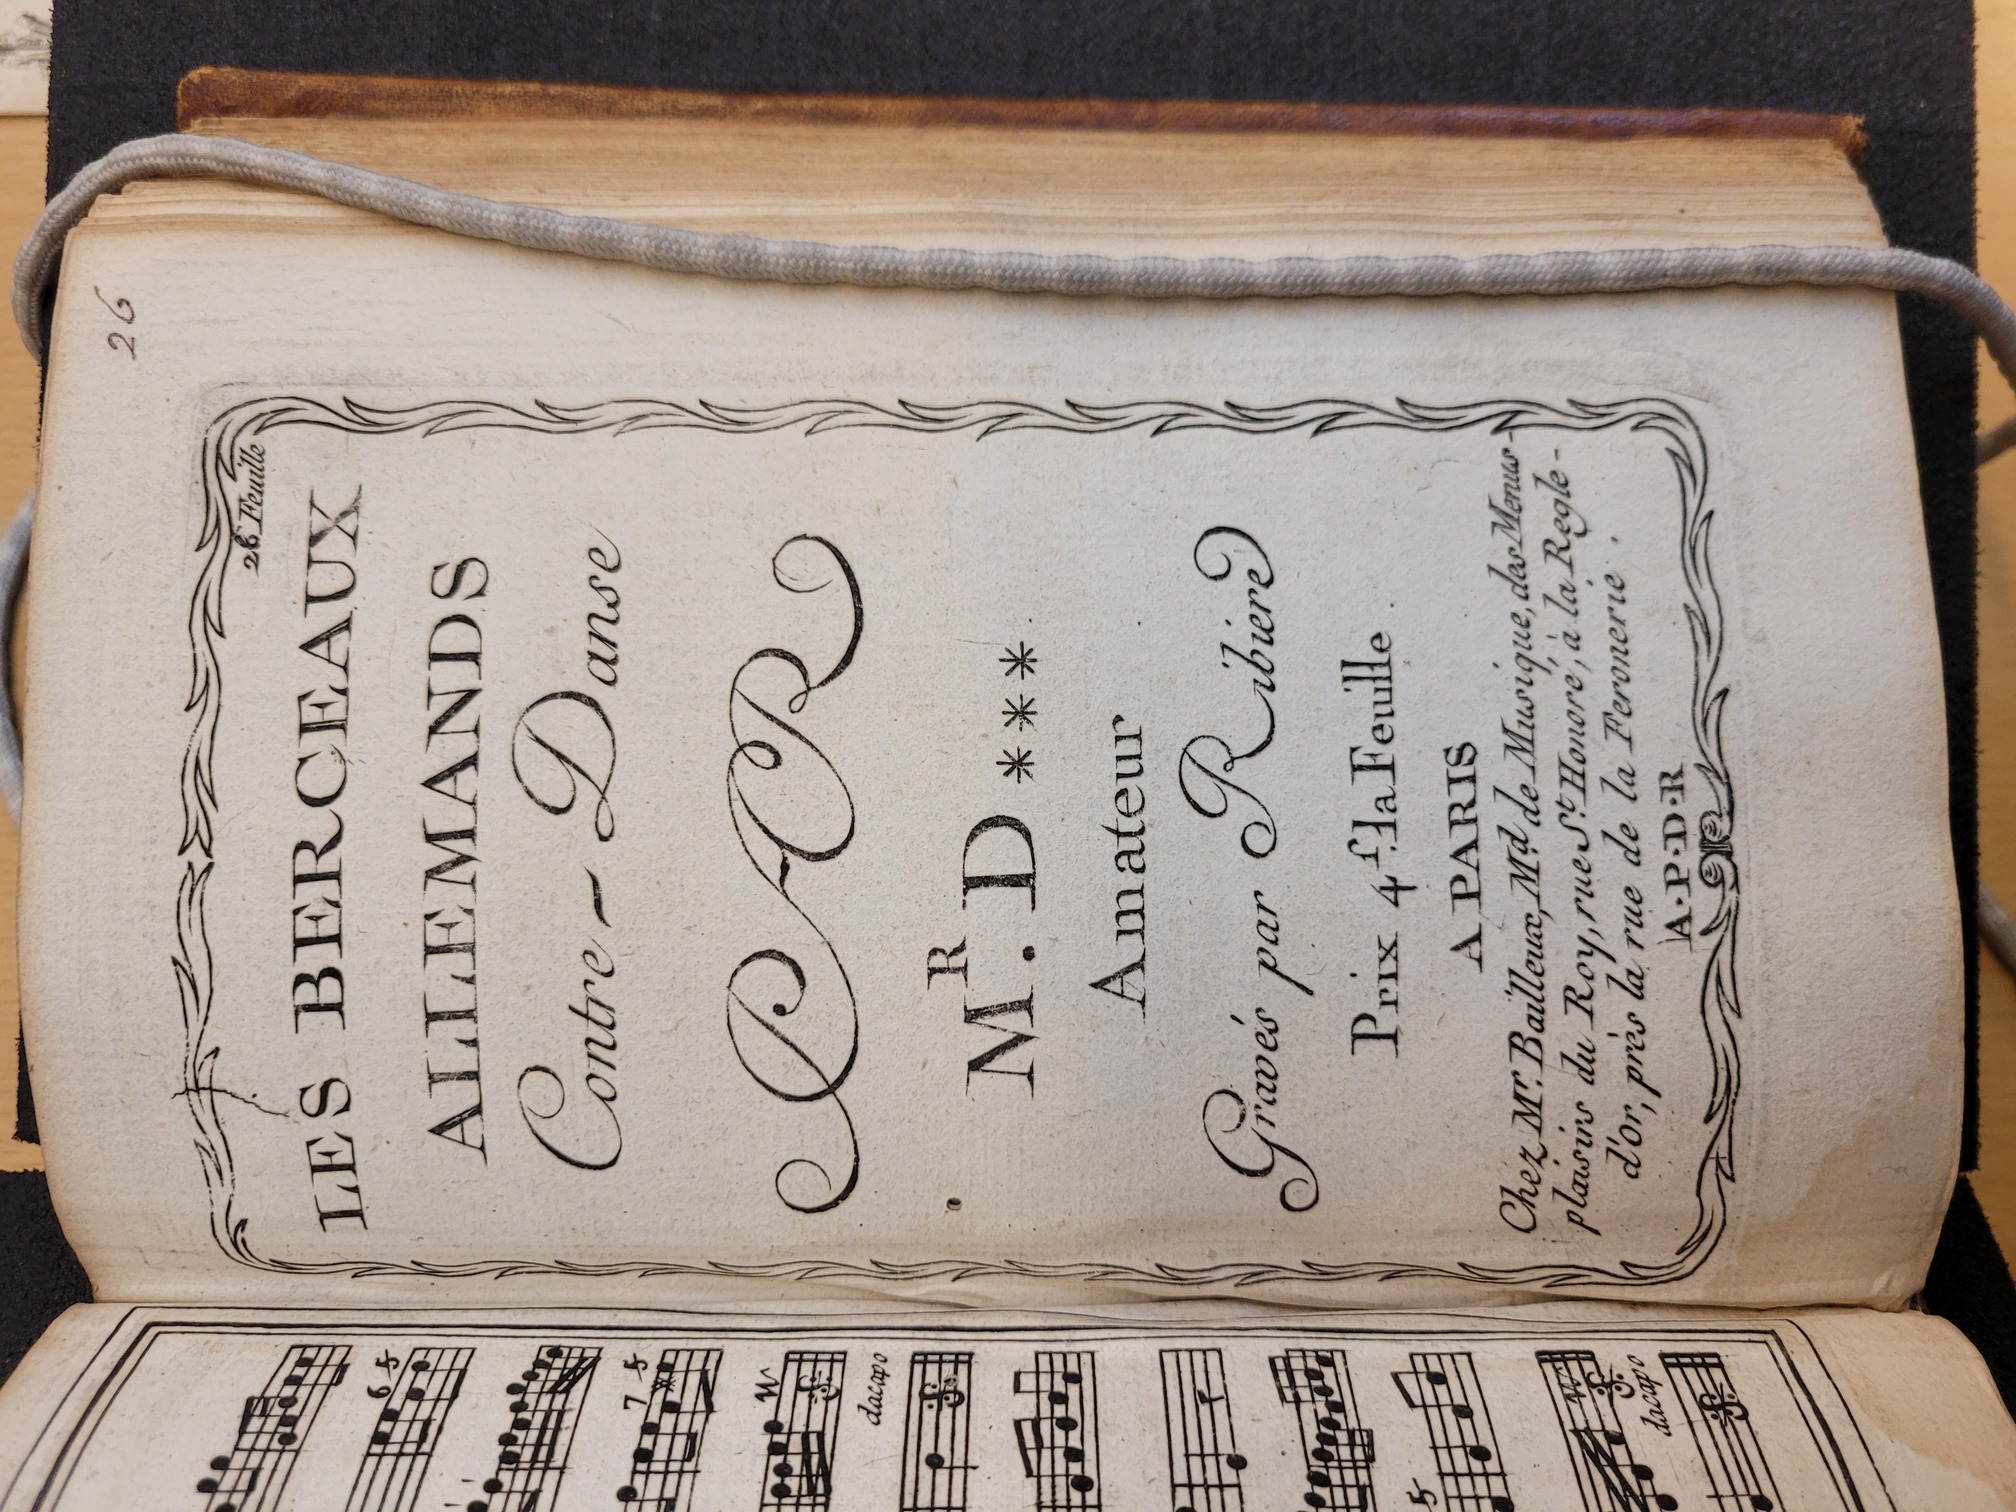 26
26 Feuille
LES BERCEAUX
ALLEMANDS
Contre ~ Danse
PAR
M.R D ***
Amateur
Gravés par Ribiere
Prix 4 f. la Feuille.
A PARIS
Chez Mr. Bailleux, Md. de Musique, des Menus-
plaisirs du Roy, rue St. Honoré, à la Regle-
d'or, prés la rue de la Feronerie.
A·P·D·R
6 5
7 5
dacapo
5
dacapo